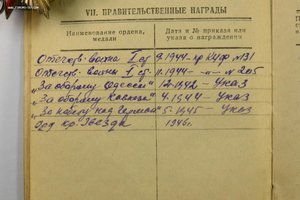 VII. ПРАВИТЕЛЬСТВЕННЫЕ НАГРАДЫ
Наименование ордена, медали
Дата и № приказа или указа о награждении
Отечеств. война I ст 9.1944 пр КЧФ № 131
Отечеств. войны I ст. 11.1944 — „ — № 205
"За оборону Одессы" 12.1942 - Указ
"За оборону Кавказа" 4.1944 - Указ
"За победу над Германией" 5.1945 - Указ
Орд кр. Звезда 1946г.